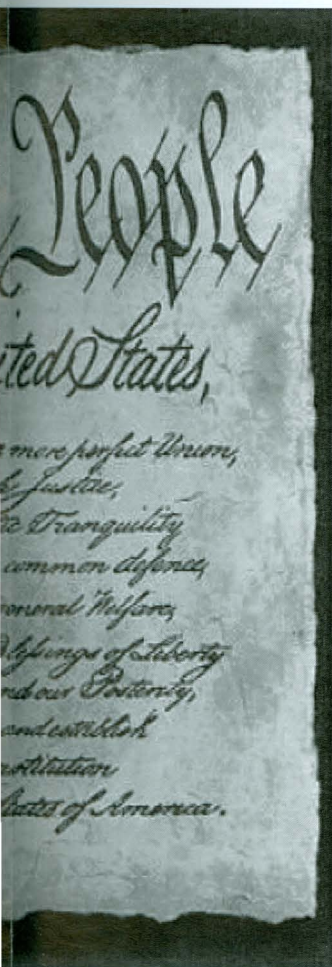 People
ited States,
more perfect Union,
Justice,
Tranquility
common defence,
eneral Welfare,
lessings of Liberty
nd our Posterity,
and establish
nstitution
tates of America.